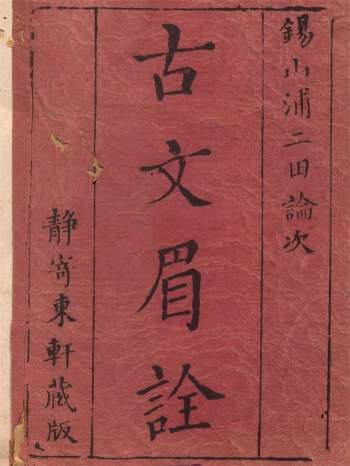 錫山浦二田論次
古文眉詮
靜寄東軒藏版